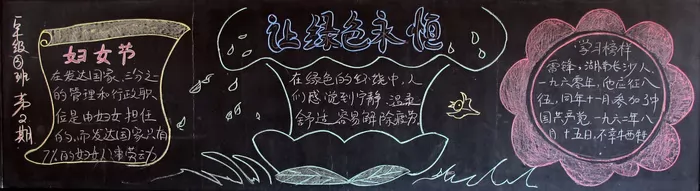 年级⑤班 第2期
妇女节
在发达国家、三分之
的管理和行政职
位是由妇女担任
的,而发达国家只有
7%的妇女从事劳动
让绿色永恒
在绿色的环境中,人
们感觉到宁静、温柔
舒适、容易解除疲劳
学习榜样
雷锋:湖南长沙人,
一九六零年,他应征入
伍,同年十一月,参加了中
国共产党,一九六二年八
月十五日,不幸牺牲